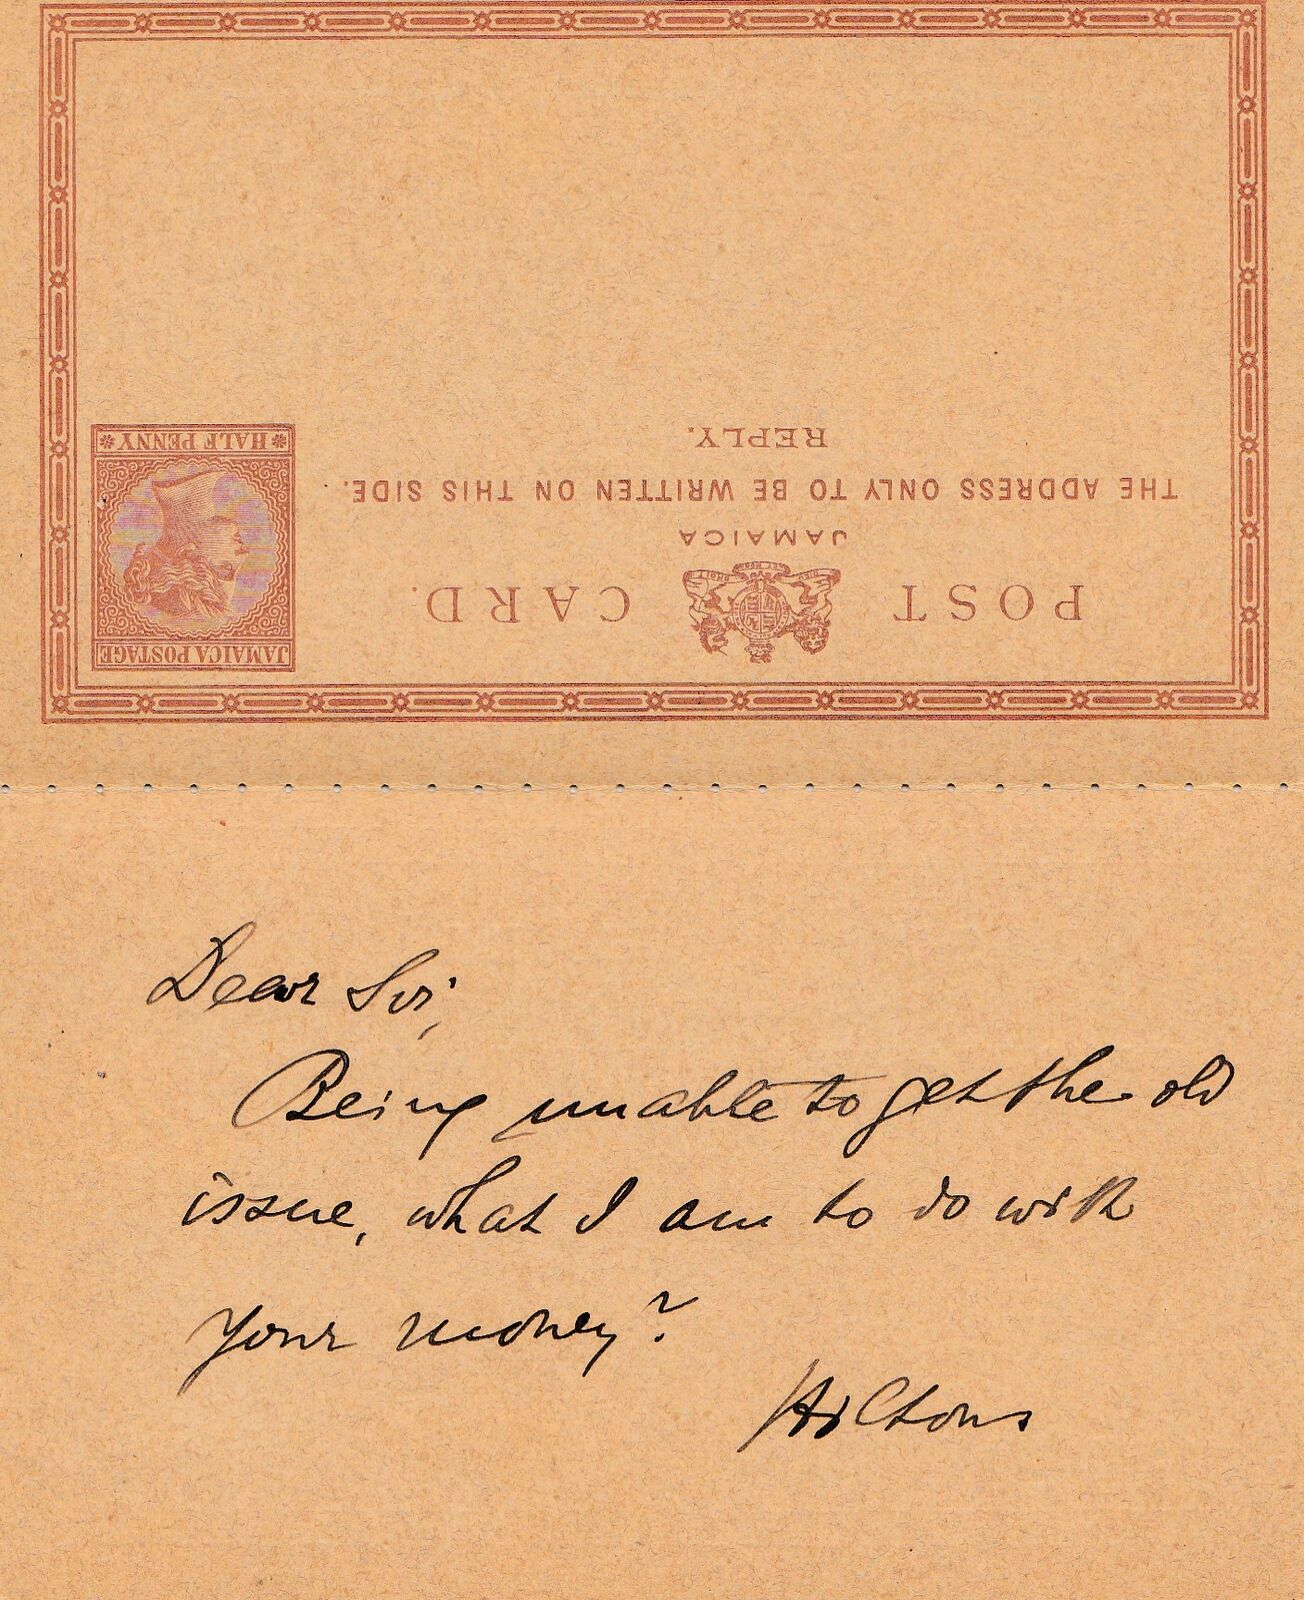 JAMAICA POSTAGE
HALF PENNY
POST CARD.
JAMAICA
THE ADDRESS ONLY TO BE WRITTEN ON THIS SIDE.
REPLY.
Dear Sir,
Being unable to get the old
issue, what I am to do with
your money?